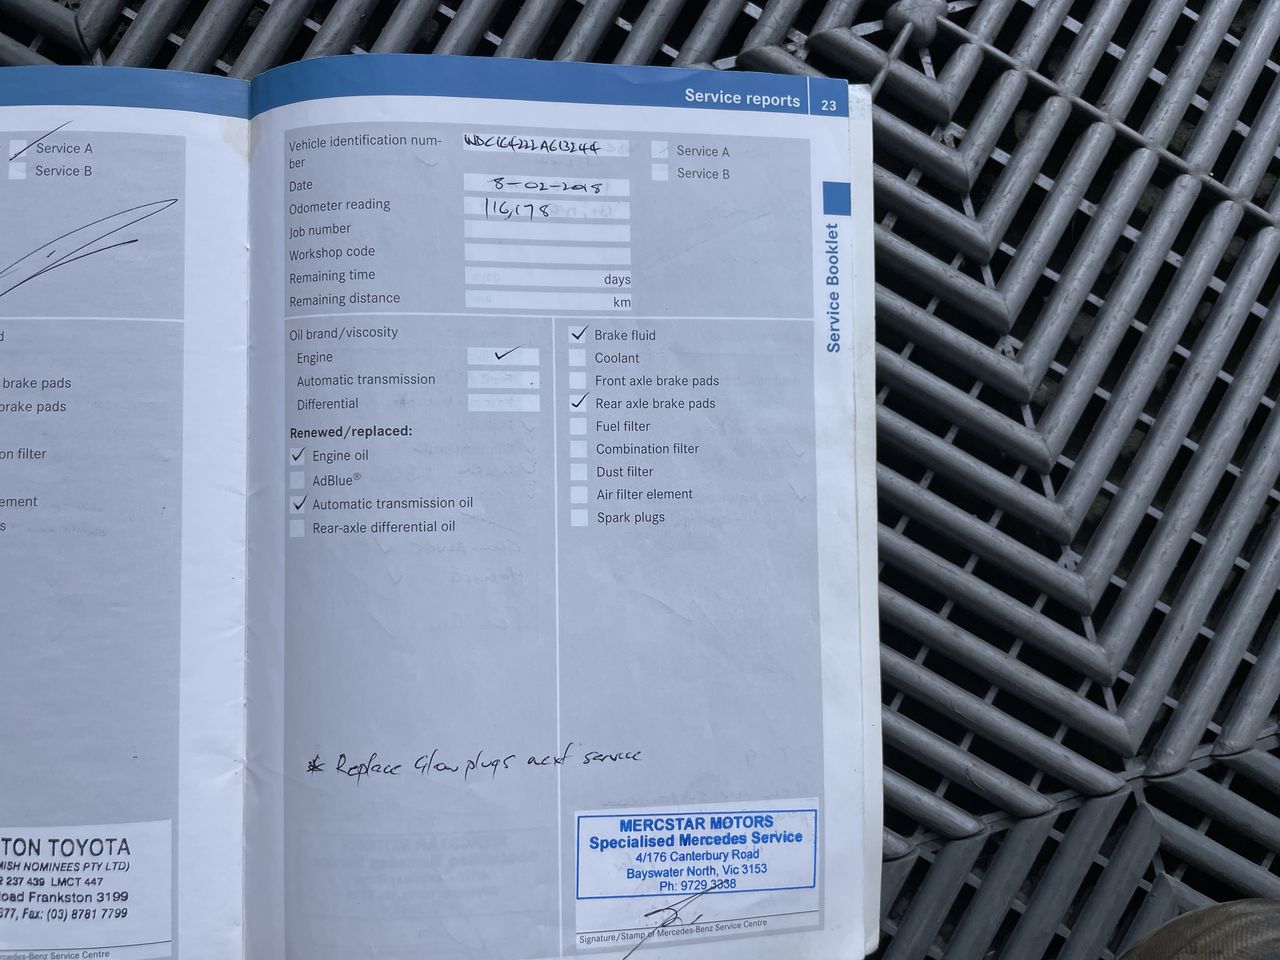 Service A
Service B
d
brake pads
brake pads
on filter
ement
s
TON TOYOTA
MISH NOMINEES PTY LTD)
2 237 439 LMCT 447
oad Frankston 3199
577, Fax: (03) 8781 7799
rcedes-Benz Service Centre
Service reports 23
Vehicle identification num-
ber WDC164222A613244
Service A
Service B
Date 8-02-2018
Odometer reading 116,178
Job number
Workshop code
Remaining time days
Remaining distance km
Oil brand/viscosity
Engine ✓
Automatic transmission
Differential
Renewed/replaced:
✓ Engine oil
AdBlue®
✓ Automatic transmission oil
Rear-axle differential oil
✓ Brake fluid
Coolant
Front axle brake pads
✓ Rear axle brake pads
Fuel filter
Combination filter
Dust filter
Air filter element
Spark plugs
* Replace Glow plugs next service
MERCSTAR MOTORS
Specialised Mercedes Service
4/176 Canterbury Road
Bayswater North, Vic 3153
Ph: 9729 3338
Signature/Stamp of Mercedes-Benz Service Centre
Service Booklet